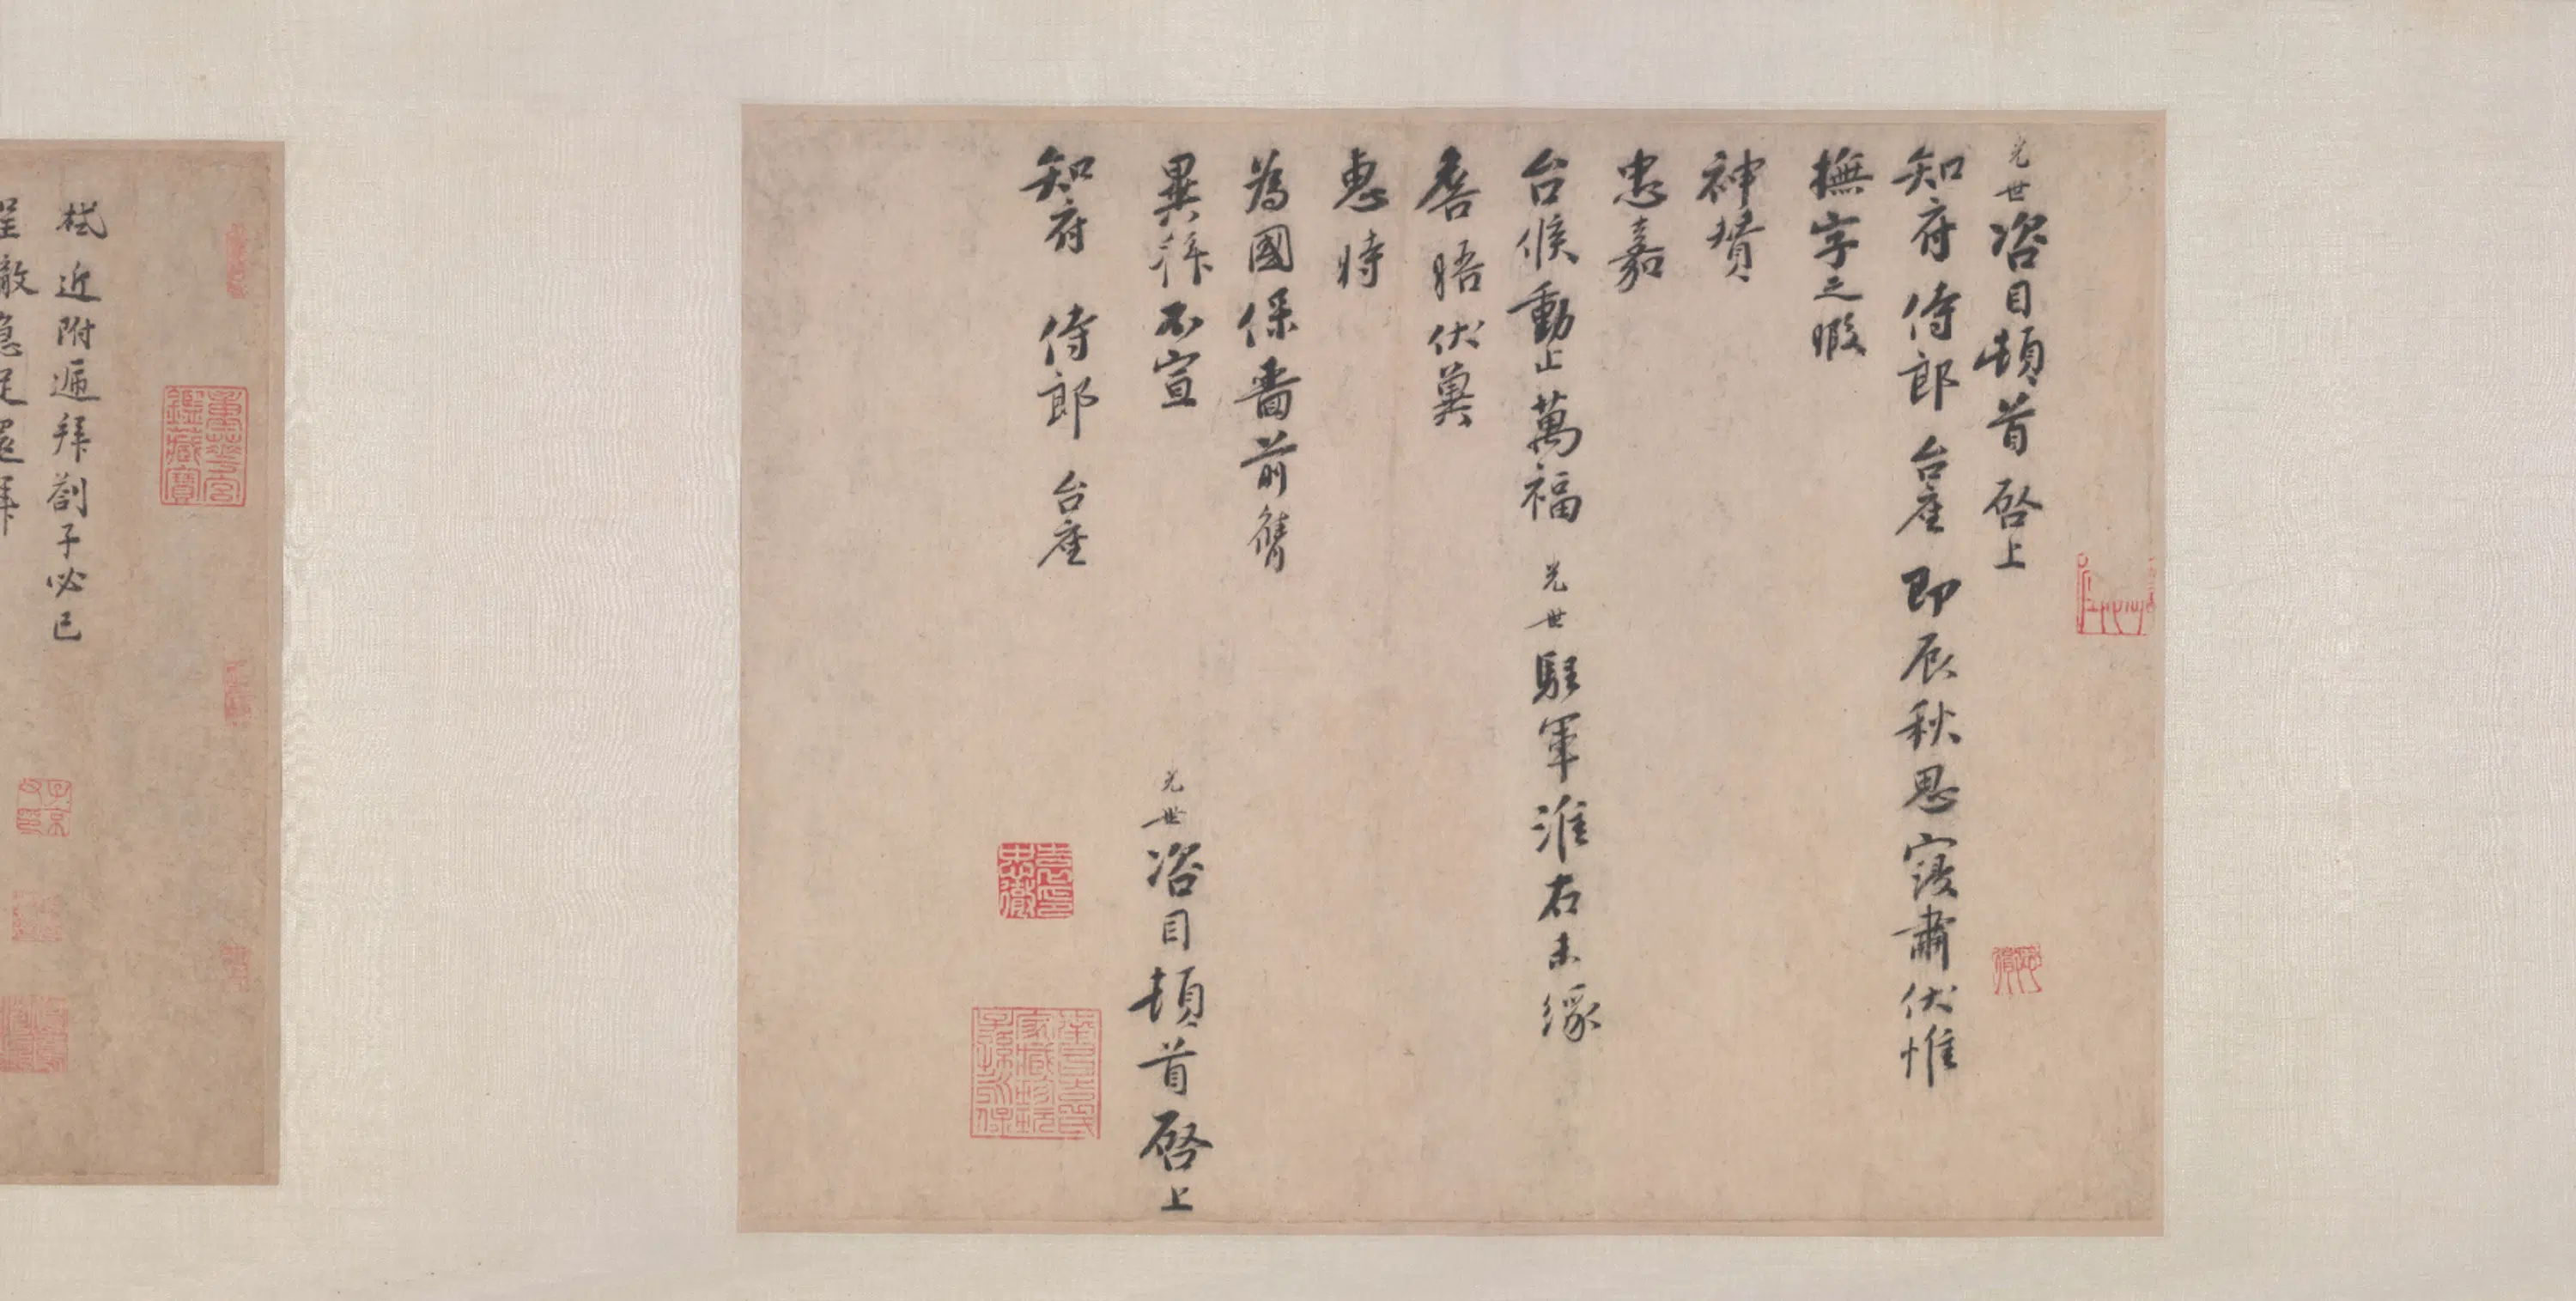 光世咨目頓首啓上
知府侍郎台座即辰秋思寖肅伏惟
撫字之暇
神賛
忠嘉
台候動止萬福光世駐軍淮右未緣
詹晤伏冀
惠時
為國保嗇前膺
異拜不宣
光世咨目頓首啓上
知府侍郎台座
袁忠徹印
栻近附遞拜劄子必已